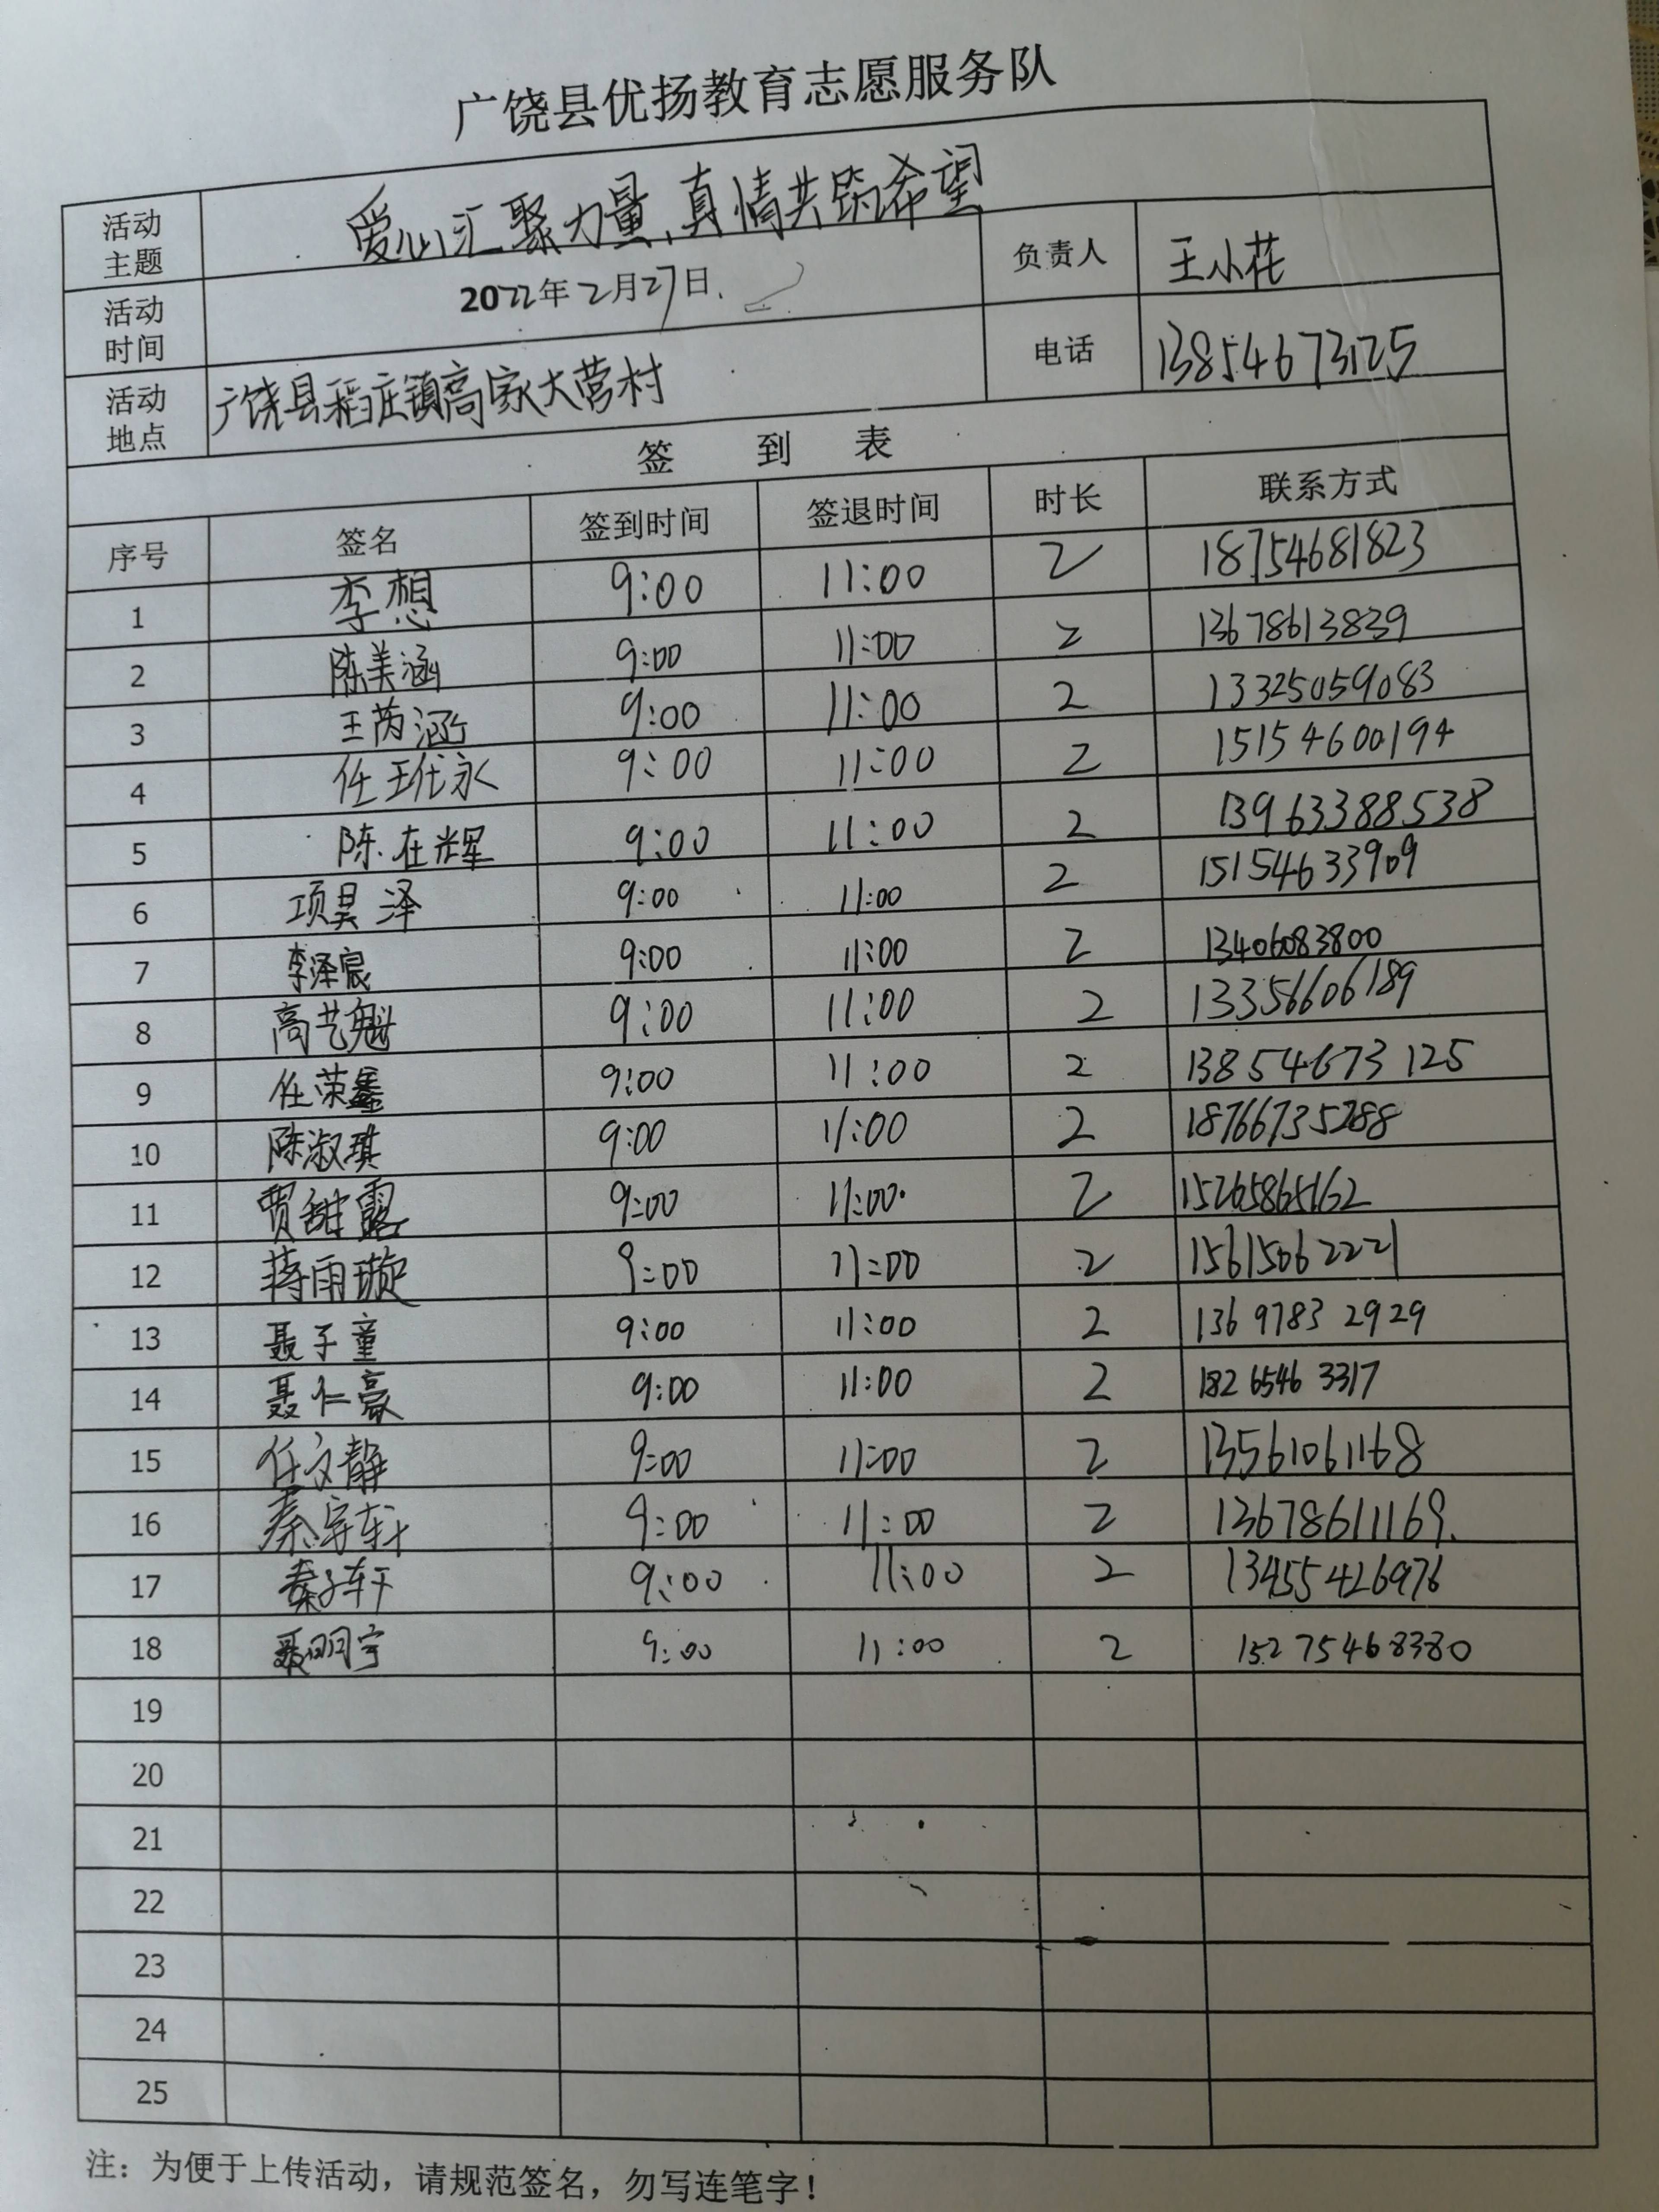 广饶县优扬教育志愿服务队
活动主题 爱心汇聚力量,真情共筑希望
活动时间 2022年2月27日. 负责人 王小花
活动地点 广饶县稻庄镇高家大营村 电话 13854673125
签 到 表
序号 签名 签到时间 签退时间 时长 联系方式
1 李想 9:00 11:00 2 18754681823
2 陈美涵 9:00 11:00 2 13678613839
3 王芮涵 9:00 11:00 2 13325059083
4 任玉代永 9:00 11:00 2 15154600194
5 陈在辉 9:00 11:00 2 13963388538
6 项昊泽 9:00 11:00 2 15154633909
7 李泽宸 9:00 11:00 2 13406083800
8 高艺魁 9:00 11:00 2 13356606189
9 任荣鑫 9:00 11:00 2 13854673125
10 陈淑琪 9:00 11:00 2 18766735288
11 贾甜露 9:00 11:00 2 15265865162
12 蒋雨璇 9:00 11:00 2 15615062221
13 聂子童 9:00 11:00 2 136 9783 2929
14 聂仁豪 9:00 11:00 2 182 6546 3317
15 任文静 9:00 11:00 2 13561061168
16 秦宇轩 9:00 11:00 2 13678611169.
17 秦子轩 9:00 11:00 2 13455426976
18 聂明宇 9:00 11:00 2 152 75468380
19
20
21
22
23
24
25
注：为便于上传活动，请规范签名，勿写连笔字！